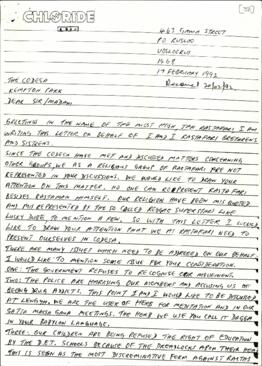 CHLORIDE
467 STREET
PO RUSLOO
VOSLOORUS
1468
17 FEBRUARY 1992
THE CODESA
KEMPTON PARK
DEAR SIR/MADAM
GREETING IN THE NAME OF THE MOST HIGH, JAH RASTAFARI I AM
WRITING THIS LETTER ON BEHALF OF I AND I RASTAFARI BRETHRENS
AND SISTRENS.
SINCE THE CODESA HAVE MET AND DISCUSSED MATTERS CONCERNING
OTHER GROUPS, WE AS A RELIGIOUS GROUP OF RASTAFARI ARE NOT
REPRESENTED IN YOUR DISCUSSIONS. WE WOULD LIKE TO DRAW YOUR
ATTENTION ON THIS MATTER. NO ONE CAN REPRESENT RASTAFARI
BESIDES RASTAMAN HIMSELF. OUR RELIGION HAVE BEEN MISQUOTED
AND BY THE SO CALLED REGGAE SUPERSTARS LIKE
LUCKY DUBE TO MENTION A FEW, SO WITH THIS LETTER I WOULD
LIKE TO DRAW YOUR ATTENTION THAT WE AS RASTAFARI NEED TO
PRESENT OURSELVES IN CODESA.
THERE ARE MANY ISSUES WHICH NEED TO BE ADDRESSED ON OUR BEHALF,
I WOULD LIKE TO MENTION SOME FOR YOUR CONSIDERATION.
ONE: THE GOVERNMENT REFUSES TO RECOGNISE OUR MOVEMENT.
TWO: THE POLICE ARE HARASSING OUR MEMBERS AND ACCUSING US OF
BEING DRUG ADDICTS. THIS POINT I AND I WOULD LIKE TO BE DISCUSSED
AT LENGTH. WE ARE THE USER OF HERB FOR MEDITATION AND IN OUR
MEETINGS. THE HERB WE USE YOU CALL IT DAGGA
IN YOUR BABYLON LANGUAGE.
THREE: OUR CHILDREN ARE BEING REFUSED THE RIGHT OF EDUCATION
BY THE D.E.T. SCHOOLS BECAUSE OF THE DREADLOCKS UPON THEIR HEADS
THIS IS SEEN AS THE MOST DISCRIMINATIVE FORM AGAINST RASTAS